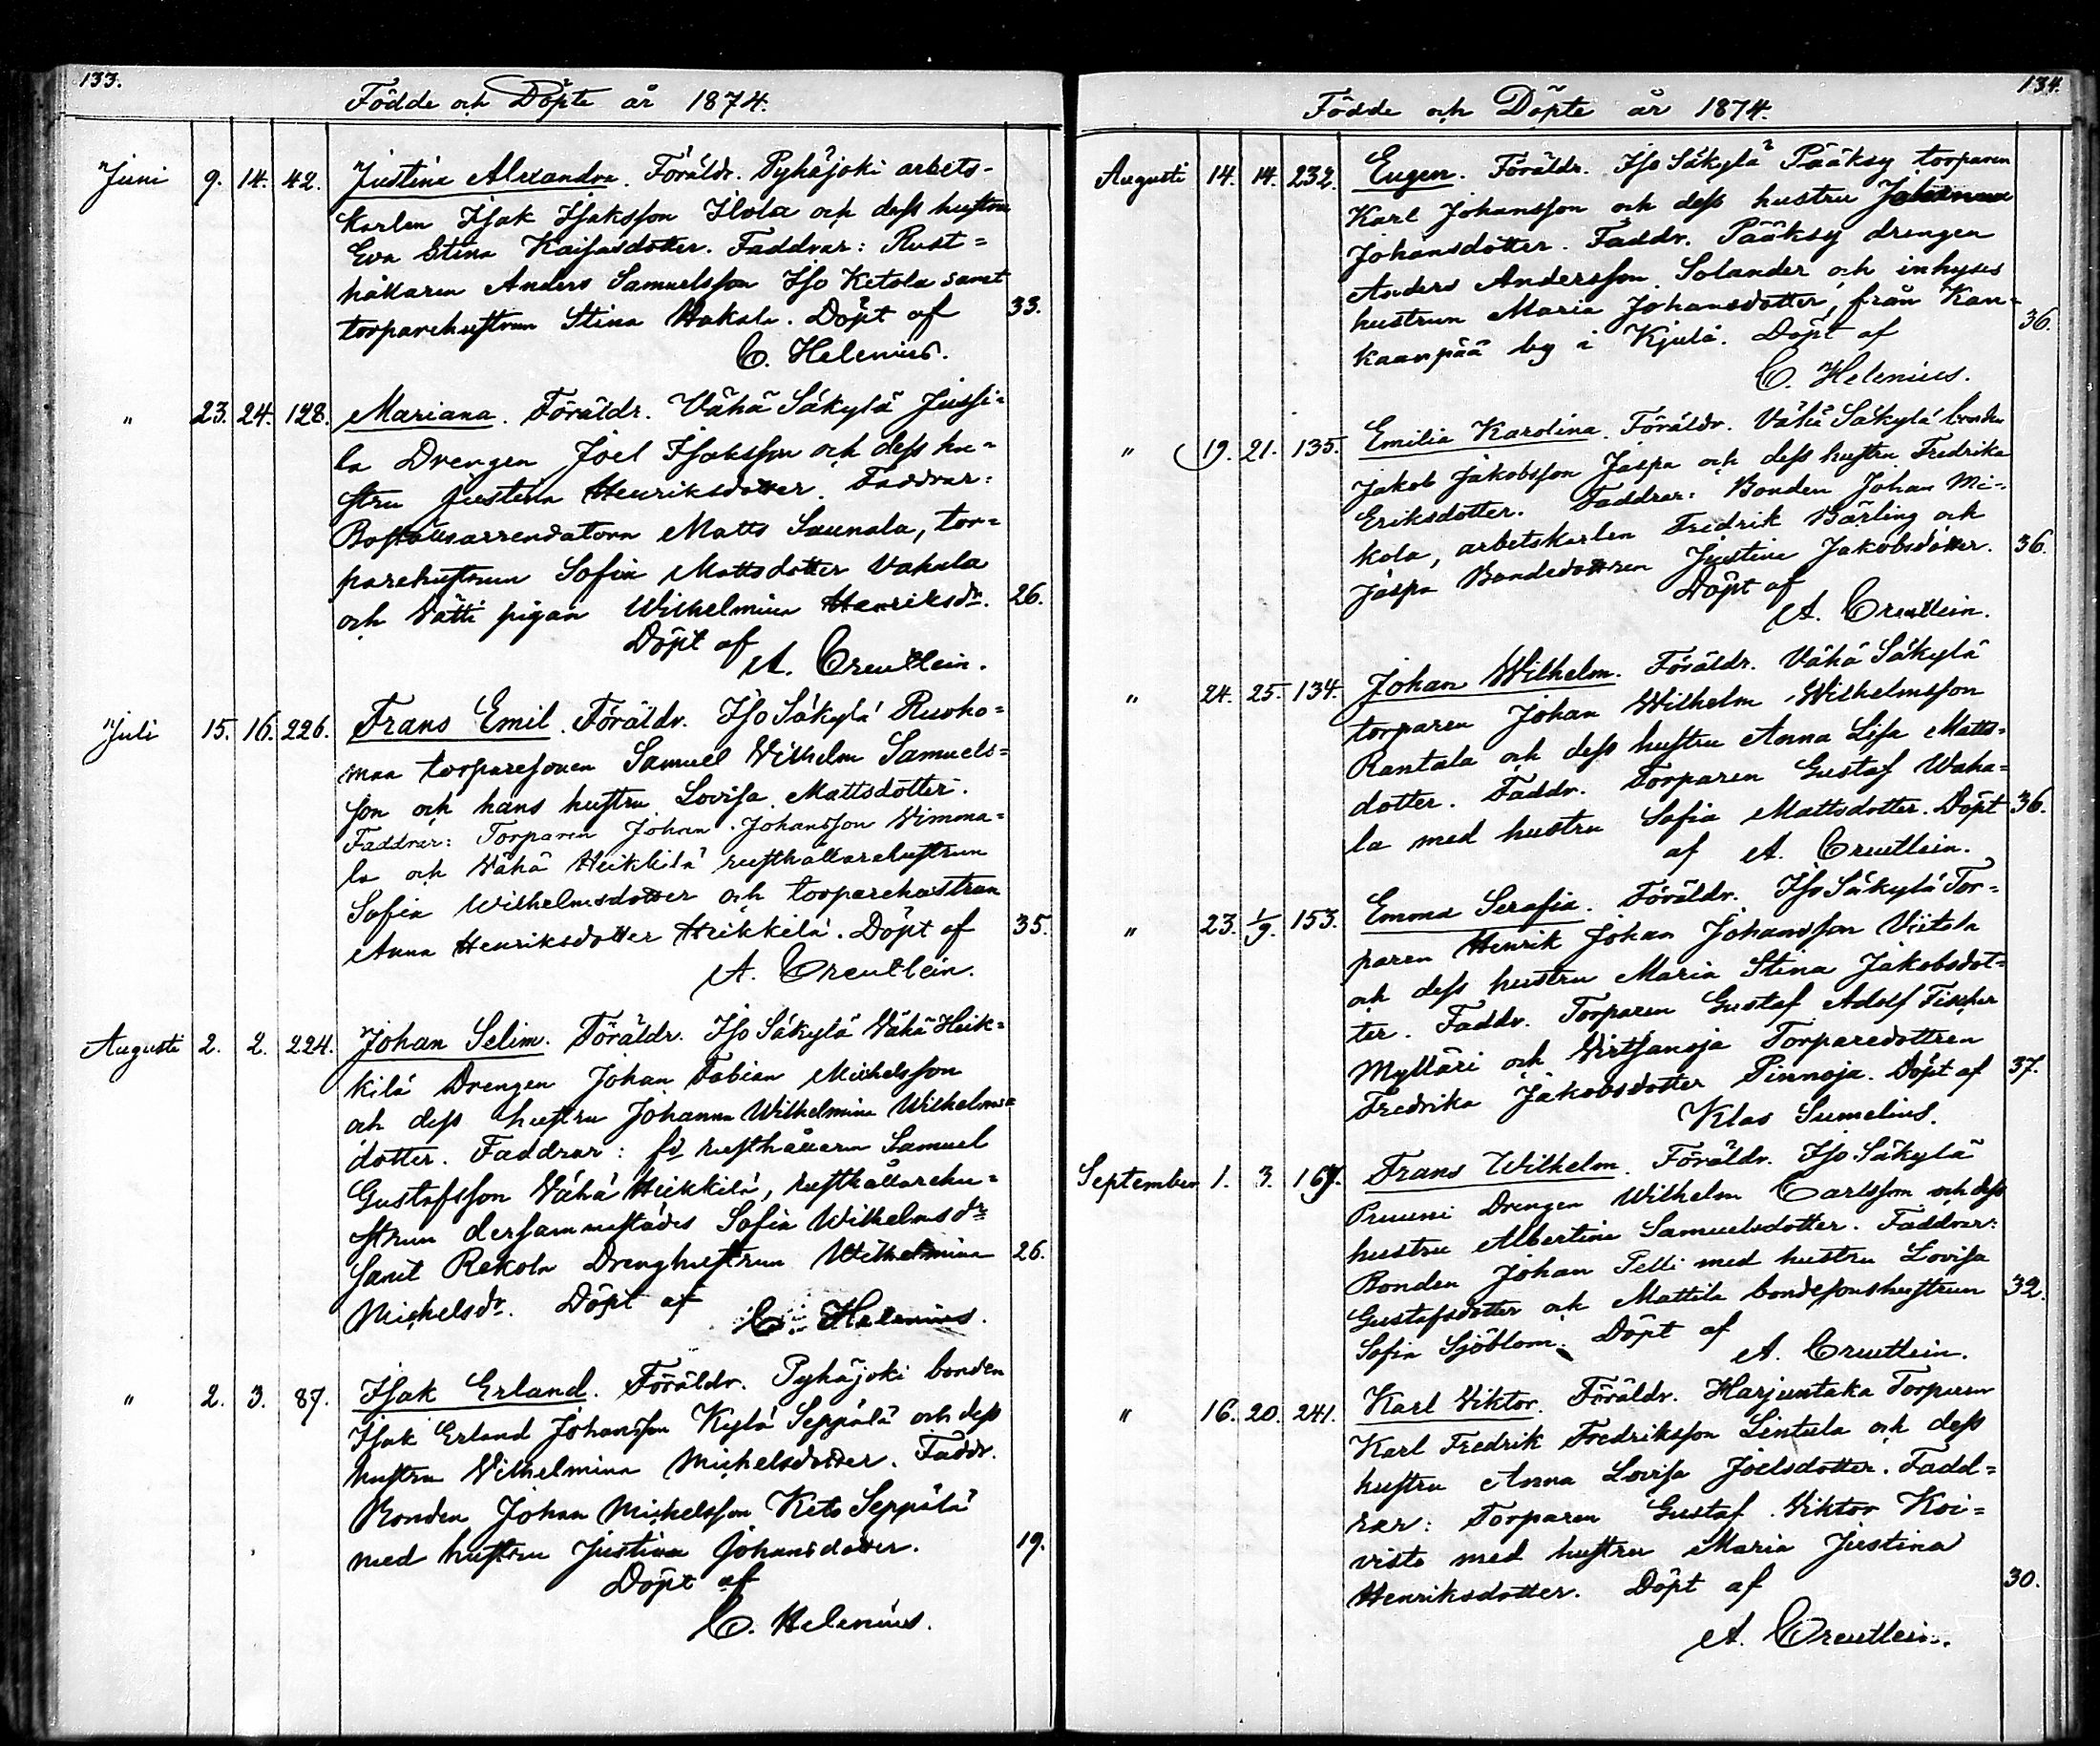 133.
Födde och Döpte år 1874.
Juni 9. 14. 42. Justina Alexandra. Föräldr. Pyhäjoki arbets-
karlen Isak Isaksson Ilola och dess hustru
Eva Stina Kaisasdotter. Faddrar: Rust=
hållaren Anders Samuelsson Iso Ketola samt
torparehustrun Stina Hakala. Döpt af 33.
C. Helenius.
" 23. 24. 128. Mariana. Föräldr. Vähä Säkylä Jussi=
la Drengen Joel Isaksson och dess hu=
stru Justina Henriksdotter. Faddrar:
Boställsarrendatorn Matts Saunala, tor=
parehustrun Sofia Mattsdotter Vahala
och Vätti pigan Wilhelmina Henriksdr. 26.
Döpt af
A. Creutlein.
Juli 15. 16. 226. Frans Emil. Föräldr. Iso Säkylä Ruoho=
maa torparesonen Samuel Wilhelm Samuels=
son och hans hustru Lovisa Mattsdotter.
Faddrar: Torparen Johan Johansson Vimma=
la och Vähä Heikkilä rusthållarehustrun
Sofia Wilhelmsdotter och torparehustrun
Anna Henriksdotter Heikkilä. Döpt af 35.
A. Creutlein.
Augusti 2. 2. 224. Johan Selim. Föräldr. Iso Säkylä Vähä Heik=
kilä Drengen Johan Fabian Michelsson
och dess hustru Johanna Wilhelmina Wilhelms=
dotter. Faddrar: fd rusthållaren Samuel
Gustafsson Vähä Heikkilä, rusthållarehu=
strun dersammastädes Sofia Wilhelmsdr
samt Rekola Drenghustrun Wilhelmina 26.
Michelsdr. Döpt af
C. Helenius.
" 2. 3. 87. Isak Erland. Föräldr. Pyhäjoki bonden
Isak Erland Johansson Kylä Seppälä och dess
hustru Vilhelmina Michelsdotter. Faddr.
Bonden Johan Michelsson Keto Seppälä
med hustru Justina Johansdotter. 19.
Döpt af
C. Helenius.
134.
Födde och Döpte år 1874.
Augusti 14. 14. 232. Eugen. Föräldr. Iso Säkylä Pääksy torparen
Karl Johansson och dess hustru Johanna
Johansdotter. Faddr. Pääksy drengen
Anders Andersson Solander och inhyses
hustrun Maria Johansdotter, från Kan=
kaanpää by i Kjulo. Döpt af 36.
C. Helenius.
" 19. 21. 135. Emilia Karolina. Föräldr. Vähä Säkylä bonden
Jakob Jakobsson Jaspa och dess hustru Fredrika
Eriksdotter. Faddrar: Bonden Johan Mi-
kola, arbetskarlen Fredrik Bärling och
Jaspa Bondedottren Justina Jakobsdotter. 36.
Döpt af
A. Creutlein.
" 24. 25. 134. Johan Wilhelm. Föräldr. Vähä Säkylä
torparen Johan Wilhelm Wilhelmsson
Rantala och dess hustru Anna Lisa Matts=
dotter. Faddr. Torparen Gustaf Waha=
la med hustru Sofia Mattsdotter. Döpt 36.
af A. Creutlein.
" 23. 1/9. 153. Emma Serafia. Föräldr. Iso Säkylä Tor=
paren Henrik Johan Johansson Viitala
och dess hustru Maria Stina Jakobsdot=
ter. Faddr. Torparen Gustaf Adolf Fischer
Mylläri och Virtsanoja Torparedottren
Fredrika Jakobsdotter Pinnoja. Döpt af 37.
Klas Sumelius.
September 1. 3. 167. Frans Wilhelm. Föräldr. Iso Säkylä
Pruuni Drengen Wilhelm Carlsson och dess
hustru Albertina Samuelsdotter. Faddrar:
Bonden Johan Pelli med hustru Lovisa
Gustafsdotter och Mattila bondesonshustrun 32.
Sofia Sjöblom. Döpt af
A. Creutlein.
" 16. 20. 241. Karl Viktor. Föräldr. Harjuntaka Torparen
Karl Fredrik Fredriksson Lintula och dess
hustru Anna Lovisa Joelsdotter. Fadd=
rar: Torparen Gustaf Viktor Koi=
visto med hustru Maria Justina
Henriksdotter. Döpt af 30.
A. Creutlein.